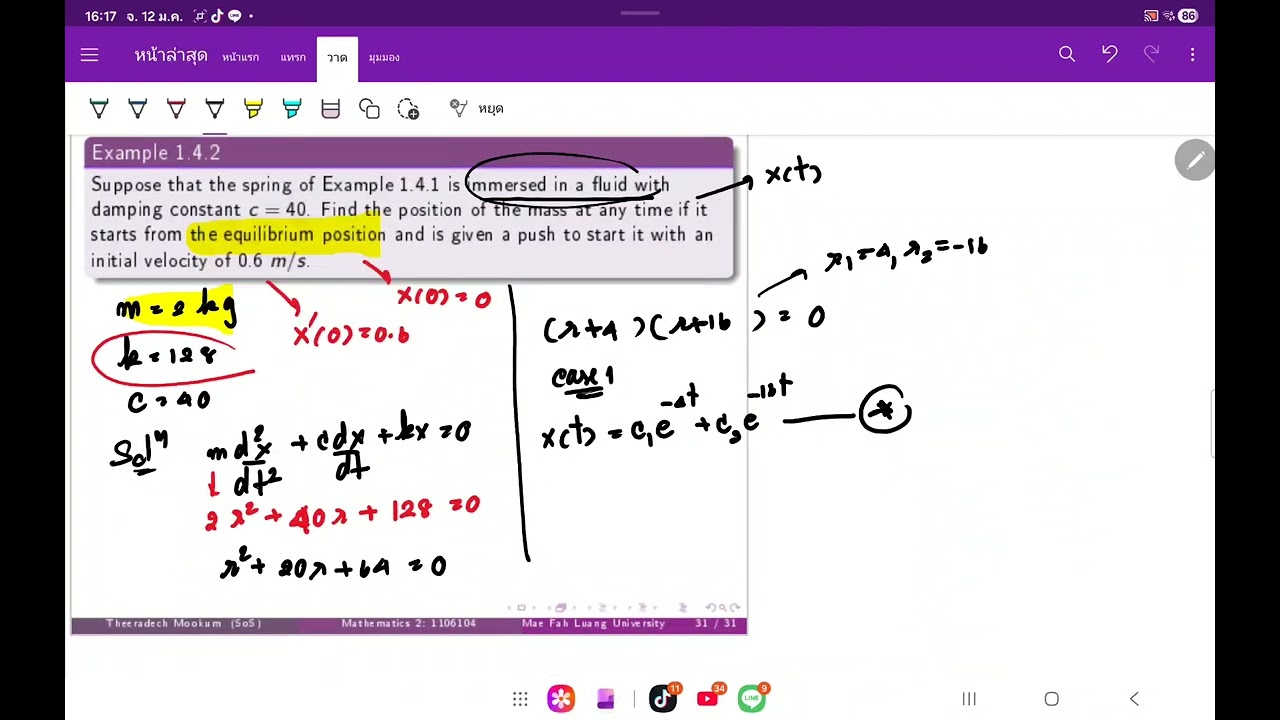 16:17 จ. 12 ม.ค.
86
หน้าล่าสุด หน้าแรก แทรก วาด มุมมอง
หยุด
Example 1.4.2
Suppose that the spring of Example 1.4.1 is immersed in a fluid with
damping constant c = 40. Find the position of the mass at any time if it
starts from the equilibrium position and is given a push to start it with an
initial velocity of 0.6 m/s.
x(t)
x(0) = 0
x'(0) = 0.6
m = 2 kg
k = 128
c = 40
Solⁿ m d²x/dt² + c dx/dt + kx = 0
2r² + 40r + 128 = 0
r² + 20r + 64 = 0
r₁ = -4, r₂ = -16
(r+4)(r+16) = 0
case 1
x(t) = c₁e^-4t + c₂e^-16t *
Theeradech Mookum (SoS) Mathematics 2: 1106104 Mae Fah Luang University 31 / 31
11
34
LINE 9